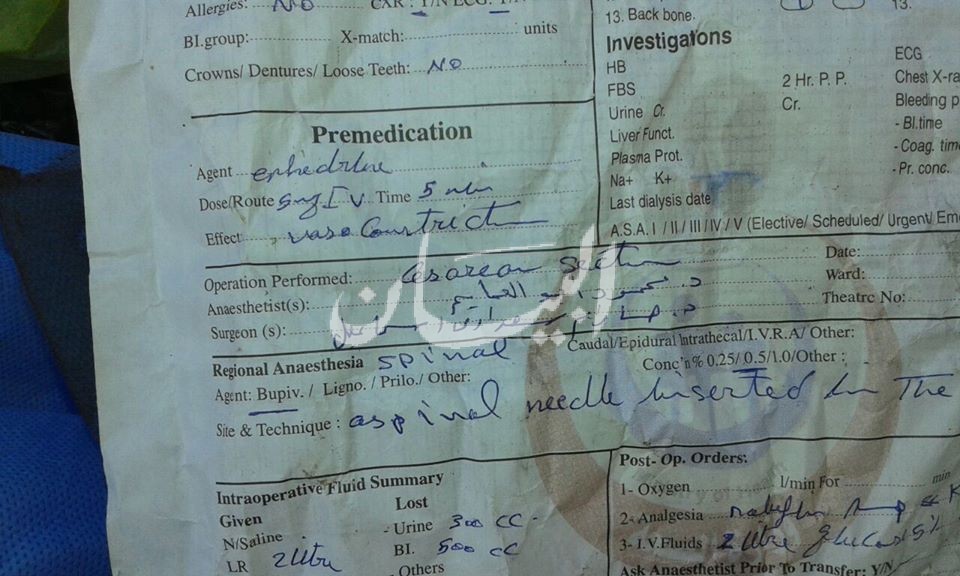 Allergies: NO CXR: Y/N ECG: Y/N
BI.group: X-match: units
Crowns/ Dentures/ Loose Teeth: NO
Premedication
Agent ephedrine
Dose/Route 5mg I V Time 5 min
Effect vasoConstrict
Operation Performed: Cesarean Section
Anaesthetist(s): د. محمود
Surgeon (s):
Regional Anaesthesia spinal
Caudal/Epidural Intrathecal/I.V.R.A/ Other:
Agent: Bupiv. / Ligno. / Prilo./ Other:
Conc'n% 0.25/ 0.5/1.0/Other :
Site & Technique : a spinal needle inserted in The
Intraoperative Fluid Summary
Given Lost
N/Saline Urine 300 cc
LR 2 litre BI. 500 cc
Others
13. Back bone. 13.
Investigations
HB ECG
FBS 2 Hr. P. P. Chest X-ra
Urine Cr. Cr. Bleeding p
Liver Funct. - BI.time
Plasma Prot. - Coag. tim
Na+ K+ - Pr. conc.
Last dialysis date
A.S.A. I / II / III / IV / V (Elective/ Scheduled/ Urgent/ Eme
Date:
Ward:
Theatre No:
Post- Op. Orders:
1- Oxygen l/min For min
2- Analgesia
3- I.V.Fluids 2 litre glucose 5%
Ask Anaesthetist Prior To Transfer: Y/N
البيان